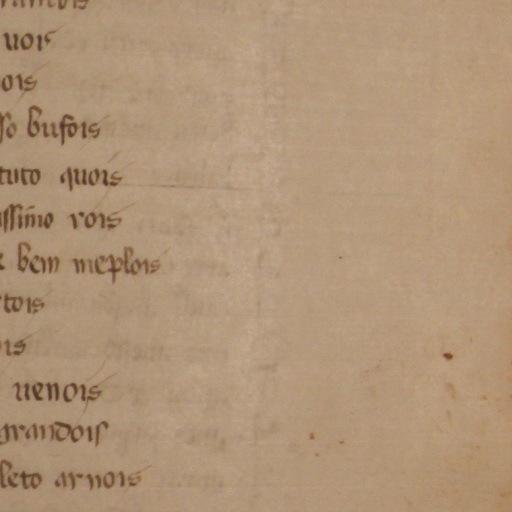 uois
ois
so bufois
tuto quois
issimo vois
bem meplois
tois
ois
uenois
grandois
leto arnois